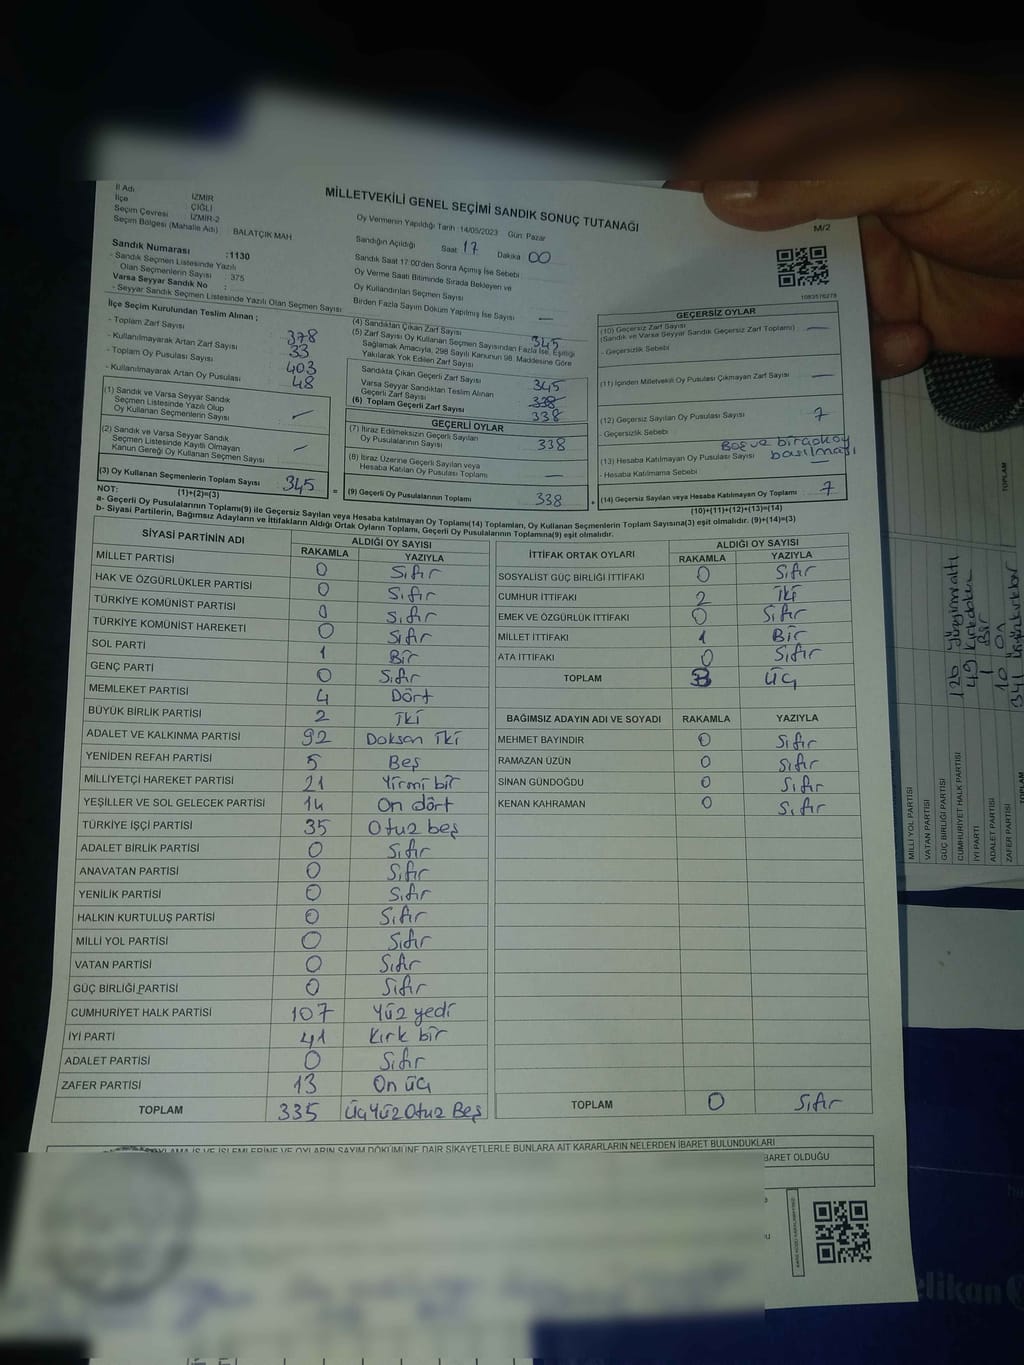 MİLLETVEKİLİ GENEL SEÇİMİ SANDIK SONUÇ TUTANAĞI
M/2
İl Adı : İZMİR
İlçe : ÇİĞLİ
Seçim Çevresi : İZMİR-2
Seçim Bölgesi (Mahalle Adı) : BALATÇIK MAH
Sandık Numarası : 1130
- Sandık Seçmen Listesinde Yazılı
Olan Seçmenlerin Sayısı : 375
Varsa Seyyar Sandık No :
- Seyyar Sandık Seçmen Listesinde Yazılı Olan Seçmen Sayısı
Oy Vermenin Yapıldığı Tarih : 14/05/2023 Gün: Pazar
Sandığın Açıldığı Saat 17 Dakika 00
Sandık Saat 17:00'den Sonra Açılmış İse Sebebi
Oy Verme Saati Bitiminde Sırada Bekleyen ve
Oy Kullandırılan Seçmen Sayısı
Birden Fazla Sayım Döküm Yapılmış İse Sayısı —
1083576278
İlçe Seçim Kurulundan Teslim Alınan ;
- Toplam Zarf Sayısı 378
- Kullanılmayarak Artan Zarf Sayısı 33
- Toplam Oy Pusulası Sayısı 403
- Kullanılmayarak Artan Oy Pusulası 48
(1) Sandık ve Varsa Seyyar Sandık
Seçmen Listesinde Yazılı Olup
Oy Kullanan Seçmenlerin Sayısı —
(2) Sandık ve Varsa Seyyar Sandık
Seçmen Listesinde Kayıtlı Olmayan
Kanun Gereği Oy Kullanan Seçmen Sayısı —
(3) Oy Kullanan Seçmenlerin Toplam Sayısı 345
(1)+(2)=(3)
(4) Sandıktan Çıkan Zarf Sayısı 345
(5) Zarf Sayısı Oy Kullanan Seçmen Sayısından Fazla İse, Eşitliği
Sağlamak Amacıyla, 298 Sayılı Kanunun 98. Maddesine Göre
Yakılarak Yok Edilen Zarf Sayısı
Sandıkta Çıkan Geçerli Zarf Sayısı 345
Varsa Seyyar Sandıktan Teslim Alınan
Geçerli Zarf Sayısı 338
(6) Toplam Geçerli Zarf Sayısı 338
GEÇERLİ OYLAR
(7) İtiraz Edilmeksizin Geçerli Sayılan
Oy Pusulalarının Sayısı 338
(8) İtiraz Üzerine Geçerli Sayılan veya
Hesaba Katılan Oy Pusulası Toplamı —
= (9) Geçerli Oy Pusulalarının Toplamı 338 +
GEÇERSİZ OYLAR
(10) Geçersiz Zarf Sayısı
(Sandık ve Varsa Seyyar Sandık Geçersiz Zarf Toplamı) —
- Geçersizlik Sebebi
(11) İçinden Milletvekili Oy Pusulası Çıkmayan Zarf Sayısı —
(12) Geçersiz Sayılan Oy Pusulası Sayısı 7
- Geçersizlik Sebebi Boş ve birçok oy
basılması
(13) Hesaba Katılmayan Oy Pusulası Sayısı —
- Hesaba Katılmama Sebebi
(14) Geçersiz Sayılan veya Hesaba Katılmayan Oy Toplamı 7
(10)+(11)+(12)+(13)=(14)
NOT:
a- Geçerli Oy Pusulalarının Toplamı(9) ile Geçersiz Sayılan veya Hesaba katılmayan Oy Toplamı(14) Toplamları, Oy Kullanan Seçmenlerin Toplam Sayısına(3) eşit olmalıdır. (9)+(14)=(3)
b- Siyasi Partilerin, Bağımsız Adayların ve İttifakların Aldığı Ortak Oyların Toplamı, Geçerli Oy Pusulalarının Toplamına(9) eşit olmalıdır.
SİYASİ PARTİNİN ADI ALDIĞI OY SAYISI
RAKAMLA YAZIYLA
MİLLET PARTİSİ 0 Sıfır
HAK VE ÖZGÜRLÜKLER PARTİSİ 0 Sıfır
TÜRKİYE KOMÜNİST PARTİSİ 0 Sıfır
TÜRKİYE KOMÜNİST HAREKETİ 0 Sıfır
SOL PARTİ 1 Bir
GENÇ PARTİ 0 Sıfır
MEMLEKET PARTİSİ 4 Dört
BÜYÜK BİRLİK PARTİSİ 2 İki
ADALET VE KALKINMA PARTİSİ 92 Doksan İki
YENİDEN REFAH PARTİSİ 5 Beş
MİLLİYETÇİ HAREKET PARTİSİ 21 Yirmi bir
YEŞİLLER VE SOL GELECEK PARTİSİ 14 On dört
TÜRKİYE İŞÇİ PARTİSİ 35 Otuz beş
ADALET BİRLİK PARTİSİ 0 Sıfır
ANAVATAN PARTİSİ 0 Sıfır
YENİLİK PARTİSİ 0 Sıfır
HALKIN KURTULUŞ PARTİSİ 0 Sıfır
MİLLİ YOL PARTİSİ 0 Sıfır
VATAN PARTİSİ 0 Sıfır
GÜÇ BİRLİĞİ PARTİSİ 0 Sıfır
CUMHURİYET HALK PARTİSİ 107 Yüz yedi
İYİ PARTİ 41 Kırk bir
ADALET PARTİSİ 0 Sıfır
ZAFER PARTİSİ 13 On üç
TOPLAM 335 Üç Yüz Otuz Beş
İTTİFAK ORTAK OYLARI ALDIĞI OY SAYISI
RAKAMLA YAZIYLA
SOSYALİST GÜÇ BİRLİĞİ İTTİFAKI 0 Sıfır
CUMHUR İTTİFAKI 2 İki
EMEK VE ÖZGÜRLÜK İTTİFAKI 0 Sıfır
MİLLET İTTİFAKI 1 Bir
ATA İTTİFAKI 0 Sıfır
TOPLAM 3 Üç
BAĞIMSIZ ADAYIN ADI VE SOYADI RAKAMLA YAZIYLA
MEHMET BAYINDIR 0 Sıfır
RAMAZAN UZUN 0 Sıfır
SİNAN GÜNDOĞDU 0 Sıfır
KENAN KAHRAMAN 0 Sıfır
TOPLAM 0 Sıfır
İŞ VE İŞLEMLERİNE VE OYLARIN SAYIM DÖKÜMÜNE DAİR ŞİKAYETLERLE BUNLARA AİT KARARLARIN NELERDEN İBARET BULUNDUKLARI
BARET OLDUĞU
MİLLİ YOL PARTİSİ
VATAN PARTİSİ
GÜÇ BİRLİĞİ PARTİSİ
CUMHURİYET HALK PARTİSİ 126
İYİ PARTİ 49
ADALET PARTİSİ 1 Bir
ZAFER PARTİSİ 10 On
TOPLAM 341
TOPLAM
elikan